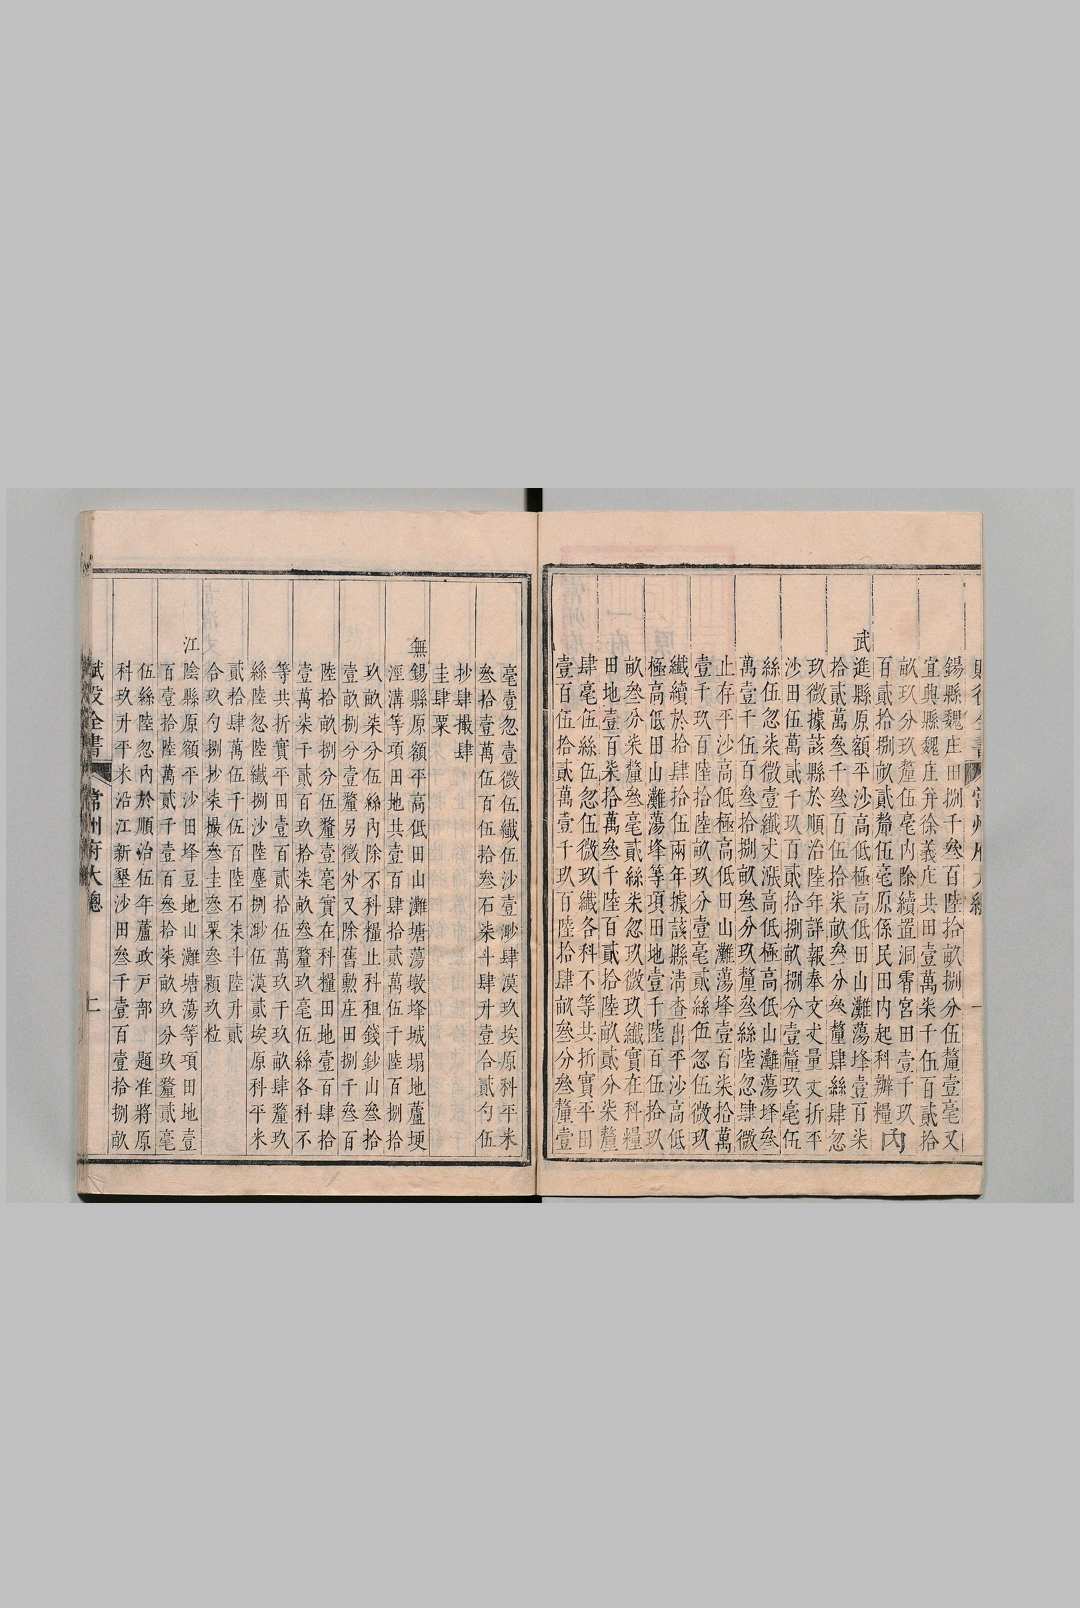 賦役全書 常州府大總 一
錫縣魏庄田捌千叁百陸拾畝捌分伍釐壹毫又
宜興縣魏庄并徐義庄共田壹萬柒千伍百貳拾
畝玖分玖釐伍毫內除續置洞霄宮田壹千玖
百貳拾捌畝貳釐伍毫原係民田內起科辦糧
武進縣原額平沙高低極高低田山灘蕩埄壹百柒
拾貳萬叁千叁百伍拾柒畝叁分叁釐肆絲肆忽
玖微據該縣於順治陸年詳報奉文丈量丈折平
沙田伍萬貳千玖百貳拾捌畝捌分壹釐玖毫伍
絲伍忽柒微壹纖丈漲高低極高低山灘蕩埄叁
萬壹千伍百叁拾捌畝叁分玖釐叁絲陸忽肆微
止存平沙高低極高低田山灘蕩埄壹百柒拾萬
壹千玖百陸拾畝玖分壹毫貳絲伍忽伍微玖
纖續於拾肆拾伍兩年據該縣清查出平沙高低
極高低田山灘蕩埄等項田地壹千陸百伍拾玖
畝叁分柒釐叁毫貳絲柒忽玖微玖纖實在科糧
田地壹百柒拾萬叁千陸百貳拾陸畝貳分柒釐
肆毫伍絲伍忽伍微玖纖各科不等共折實平田
壹百伍拾貳萬壹千玖百陸拾肆畝叁分叁釐壹
毫壹忽壹微伍纖伍沙壹渺肆漠玖埃原科平米
叁拾壹萬伍百伍拾叁石柒斗肆升壹合貳勺伍
抄肆撮肆
圭肆粟
無錫縣原額平高低田山灘塘蕩墩埄城塌地蘆埂
溼溝等項田地共壹百肆拾貳萬伍千陸百捌拾
玖畝柒分伍絲內除不科糧止科租錢鈔山叁拾
壹畝捌分壹釐另徵外又除舊勲庄田捌千叁百
陸拾畝捌分伍釐壹毫實在科糧田地壹百肆拾
壹萬柒千貳百玖拾柒畝叁釐玖毫伍絲各科不
等共折實平田壹百貳拾伍萬玖千玖畝肆釐玖
絲陸忽陸纖捌沙陸塵捌渺伍漠貳埃原科平米
貳拾肆萬伍千伍百陸石柒斗陸升貳
合玖勺捌抄柒撮叁圭叁粟叁顆玖粒
江陰縣原額平沙田埄豆地山灘塘蕩等項田地壹
百壹拾陸萬貳千壹百叁拾柒畝玖分玖釐貳毫
伍絲陸忽內於順治伍年蘆政戶部 題准將原
科玖升平米沿江新墾沙田叁千壹百壹拾捌畝
賦役全書 常州府大總 上